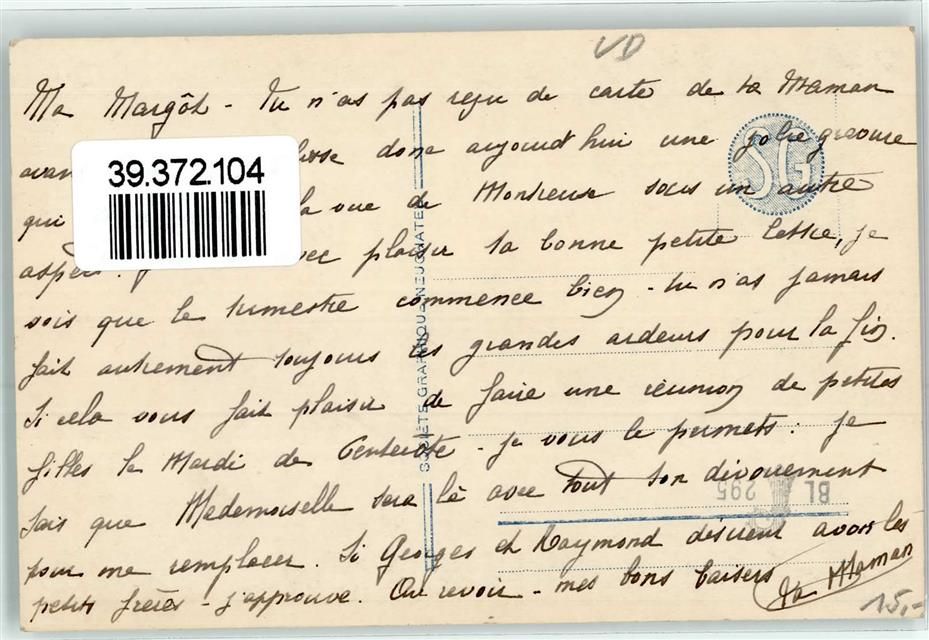 VD
Ma Margôt - Tu n'as pas reçu de carte de ta Maman
avan donc aujourd'hui une jolie gravure
qui la vue de Monsieur sous un autre
aspect. plaisir ta bonne petite lettre, je
vois que le trimestre commence bien - tu n'as jamais
fait autrement toujours les grandes ardeurs pour la fin.
Si cela vous fait plaisir de faire une réunion de petites
filles le Mardi de Pentecôte - je vous le permets : je
sais que Mademoiselle sera là avec tout son dévouement
pour me remplacer. Si Georges et Raymond désirent avoir les
petits frères - j'approuve. Au revoir - mes bons baisers
ta Maman
39.372.104
SG
SOCIETE GRAPHIQUE NEUCHATEL
BL
295
15,-